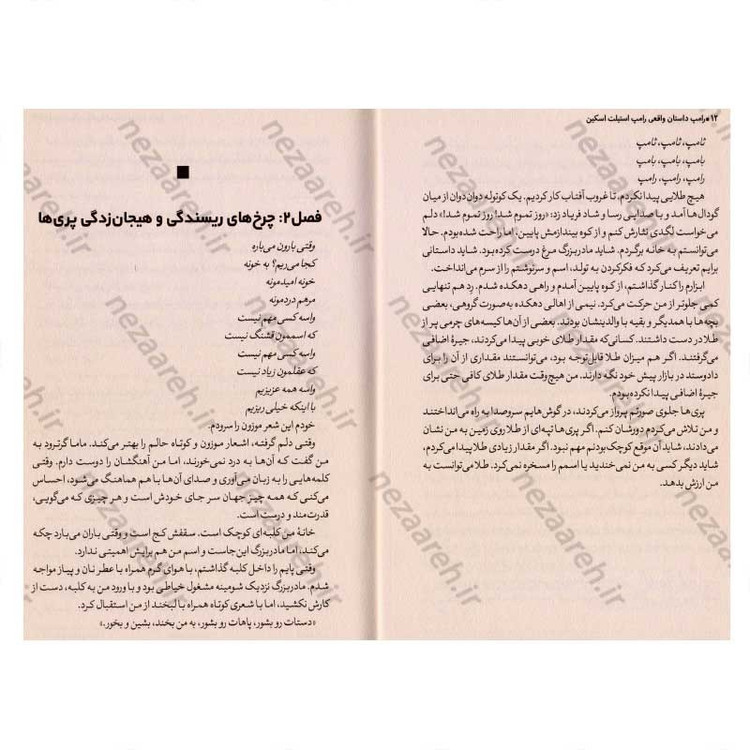 ۱۲ ■ رامپ داستان واقعی رامپ استیلت اسکین
ثامپ، ثامپ، ثامپ
بامپ، بامپ، بامپ
رامپ، رامپ، رامپ
هیچ طلایی پیدا نکردم. تا غروب آفتاب کار کردیم. یک کوتوله دوان دوان از میان
گودال‌ها آمد و با صدایی رسا و شاد فریاد زد: «روز تموم شد! روز تموم شد!» دلم
می‌خواست لگدی نثارش کنم و از کوه بیندازمش پایین، اما راحت شده بودم. حالا
می‌توانستم به خانه برگردم. شاید مادربزرگ مرغ درست کرده بود. شاید داستانی
برایم تعریف می‌کرد که فکر کردن به تولد، اسم و سرنوشتم را از سرم می‌انداخت.
ابزارم را کنار گذاشتم، از کوه پایین آمدم و راهی دهکده شدم. رد هم تنهایی
کمی جلوتر از من حرکت می‌کرد. نیمی از اهالی دهکده به‌صورت گروهی، بعضی
بچه‌ها با همدیگر و بقیه با والدینشان بودند. بعضی از آن‌ها کیسه‌های چرمی پر از
طلا در دست داشتند. کسانی که مقدار طلای خوبی پیدا می‌کردند، جیرهٔ اضافی
می‌گرفتند. اگر هم میزان طلا قابل‌توجه بود، می‌توانستند مقداری از آن را برای
دادوستد در بازار پیش خود نگه دارند. من هیچ‌وقت مقدار طلای کافی حتی برای
جیرهٔ اضافی پیدا نکرده بودم.
پری‌ها جلوی صورتم پرواز می‌کردند، در گوش‌هایم سروصدا به راه می‌انداختند
و من تلاش می‌کردم دورشان کنم. اگر پری‌ها تپه‌ای از طلا روی زمین به من نشان
می‌دادند، شاید آن موقع کوچک بودنم مهم نبود. اگر مقدار زیادی طلا پیدا می‌کردم،
شاید دیگر کسی به من نمی‌خندید یا اسمم را مسخره نمی‌کرد. طلا می‌توانست به
من ارزش بدهد.
فصل ۲: چرخ‌های ریسندگی و هیجان‌زدگی پری‌ها
وقتی بارون می‌باره
کجا می‌ریم؟ به خونه
خونه امیدمونه
مرهم دردمونه
واسه کسی مهم نیست
که آسمون قشنگ نیست
واسه کسی مهم نیست
که عقلمون زیاد نیست
واسه همه عزیزیم
با اینکه خیلی ریزیم
خودم این شعر موزون را سرودم.
وقتی دلم گرفته، اشعار موزون و کوتاه حالم را بهتر می‌کند. ماما گرترود به
من گفت که آن‌ها به درد نمی‌خورند، اما من آهنگشان را دوست دارم. وقتی
کلمه‌هایی را به زبان می‌آوری و صدای آن‌ها با هم هماهنگ می‌شود، احساس
می‌کنی که همه چیز جهان سر جای خودش است و هر چیزی که می‌گویی،
قدرت‌مند و درست است.
خانهٔ من کلبه‌ای کوچک است. سقفش کج است و وقتی باران می‌بارد چکه
می‌کند، اما مادربزرگ این‌جاست و اسم من هم برایش اهمیتی ندارد.
وقتی پایم را داخل کلبه گذاشتم، با هوای گرم همراه با عطر نان و پیاز مواجه
شدم. مادربزرگ نزدیک شومینه مشغول خیاطی بود و با ورود من به کلبه، دست از
کارش نکشید، اما با شعری کوتاه همراه با لبخند از من استقبال کرد.
«دستات رو بشور، پاهات رو بشور، به من بخند، بشین و بخور.»
nezaareh.ir